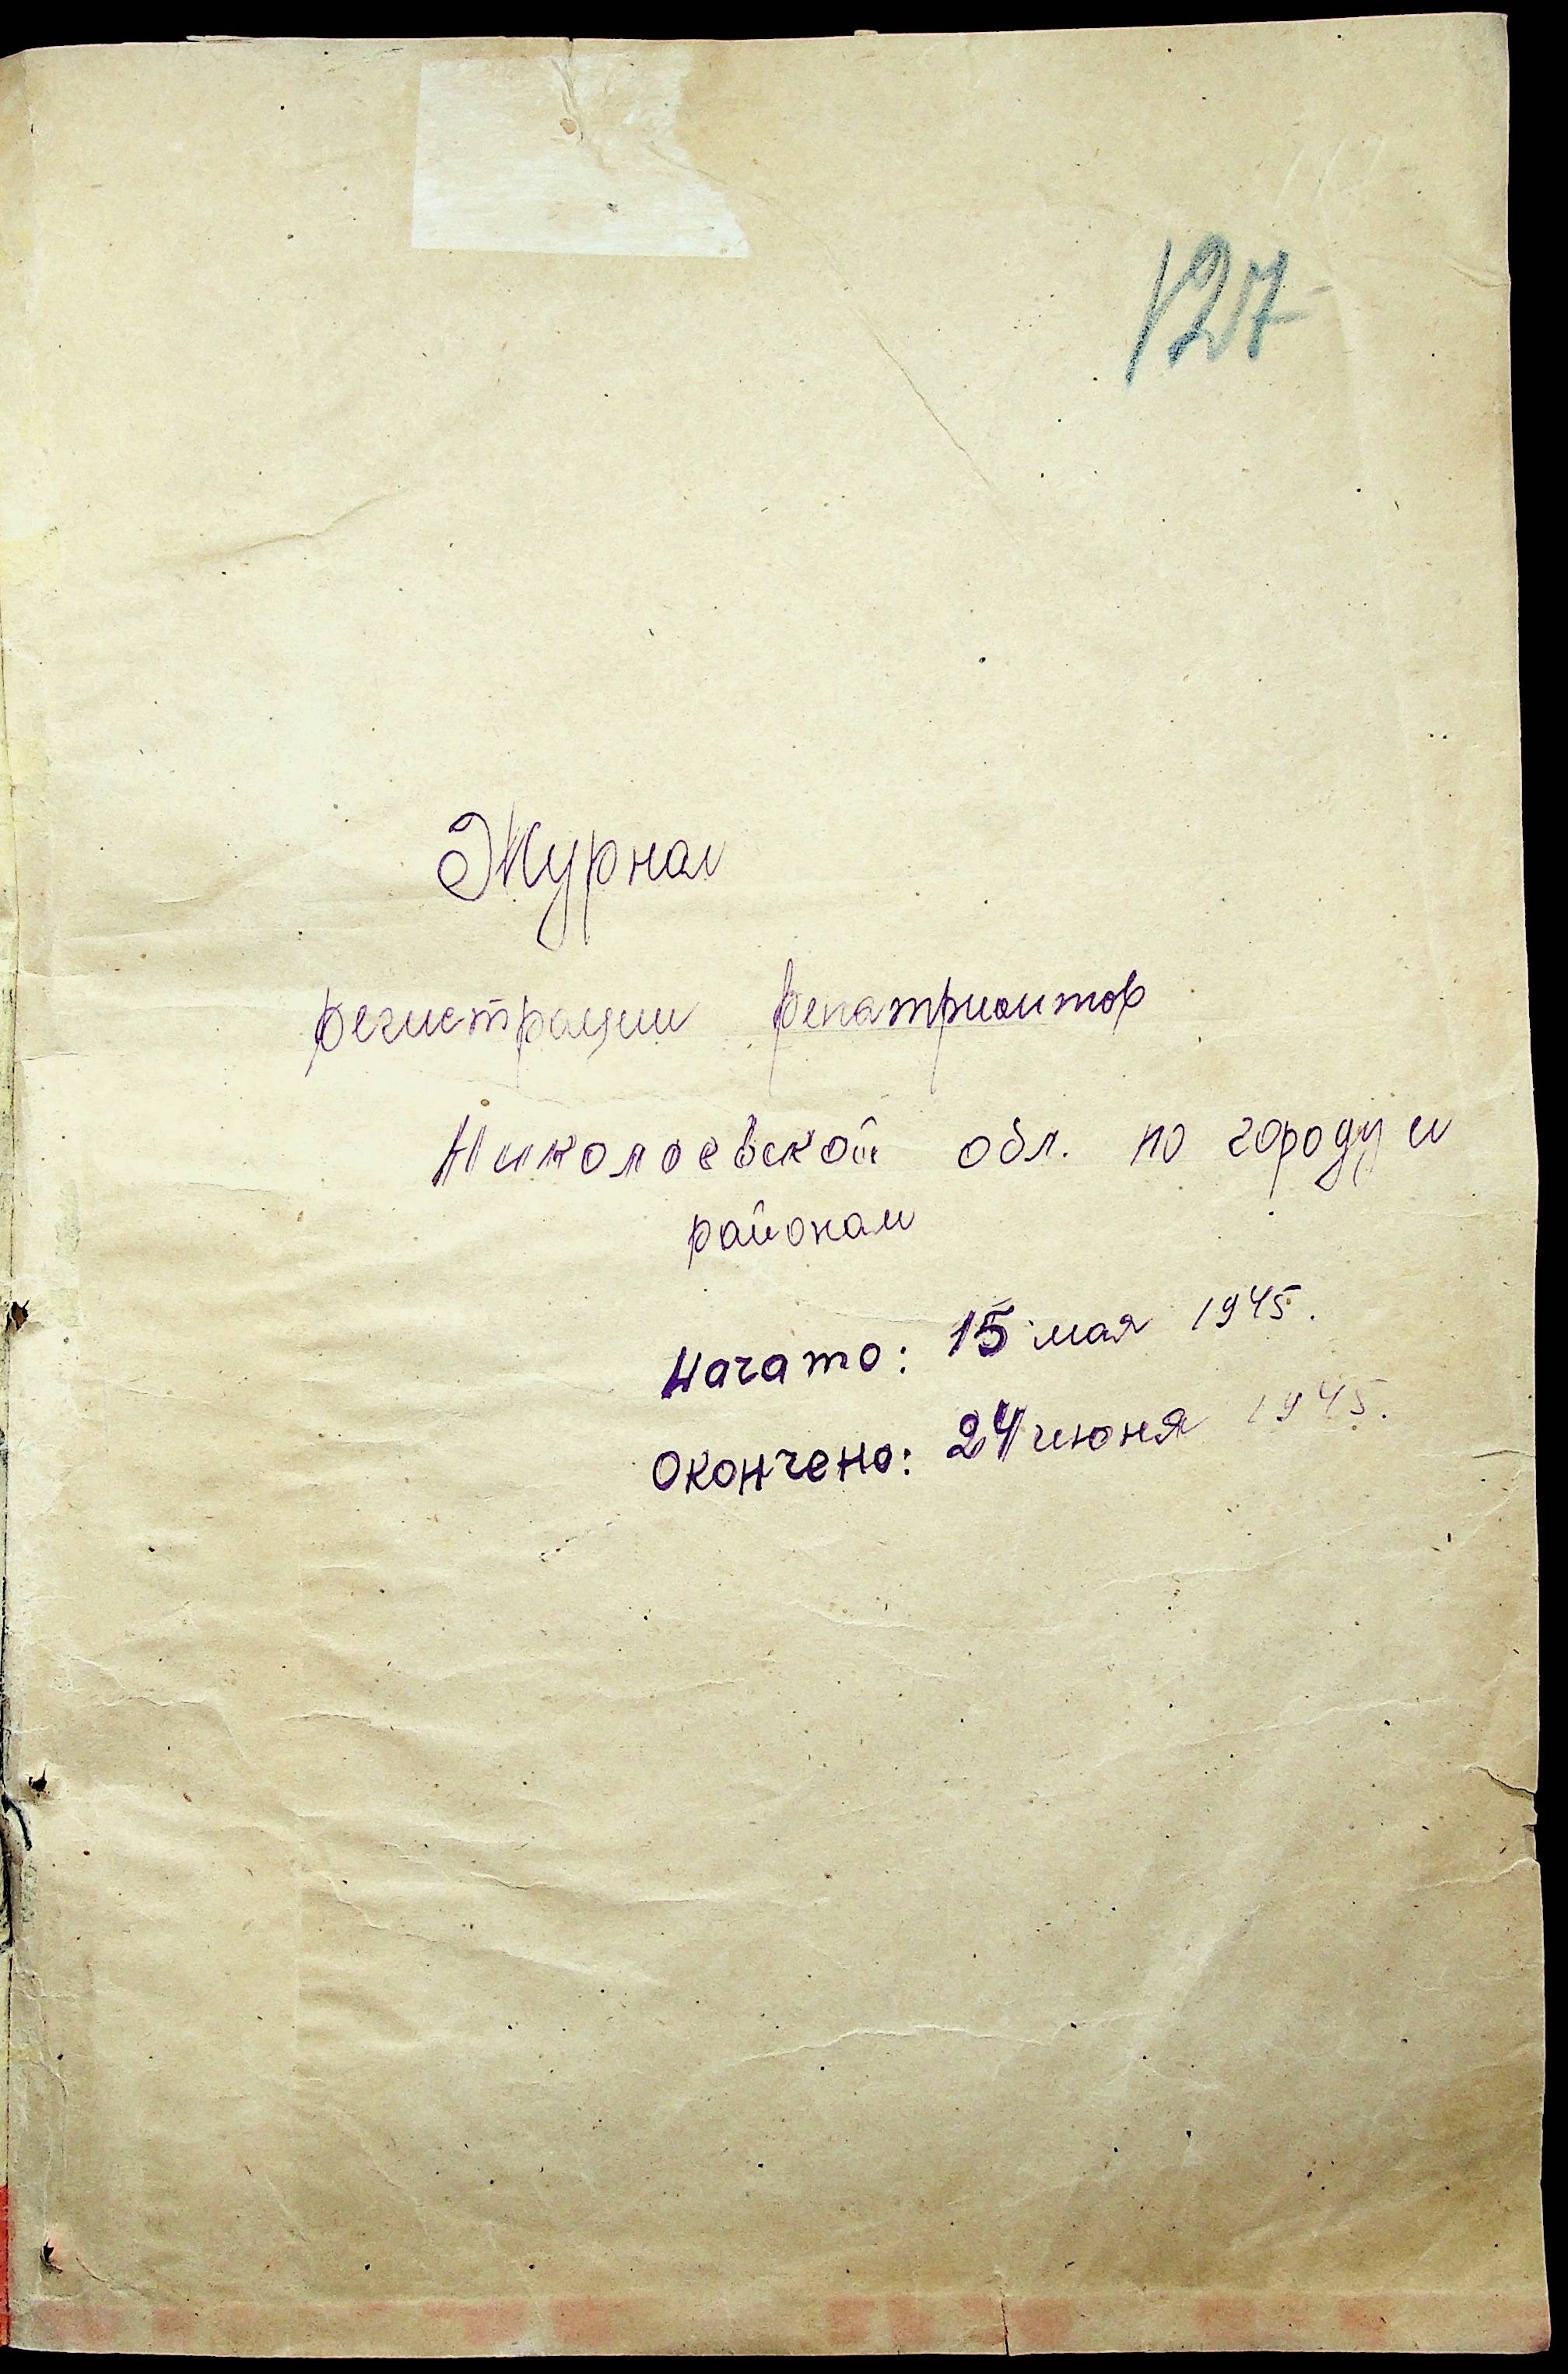 127
Журнал
регистрации репатриантов
Николаевской обл. по городу и
районам
Начато: 15 мая 1945.
Окончено: 24 июня 1945.